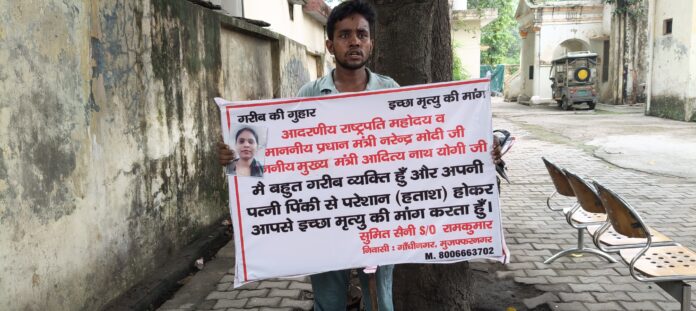 गरीब की गुहार
इच्छा मृत्यु की मांग
आदरणीय राष्ट्रपति महोदय व
माननीय प्रधान मंत्री नरेन्द्र मोदी जी
ननीय मुख्य मंत्री आदित्य नाथ योगी जी
मै बहुत गरीब व्यक्ति हुँ और अपनी
पत्नी पिंकी से परेशान (हताश) होकर
आपसे इच्छा मृत्यु की मांग करता हुँ।
सुमित सैनी S/O रामकुमार
निवासी : गाँधीनगर, मुजफ्फरनगर
M. 8006663702